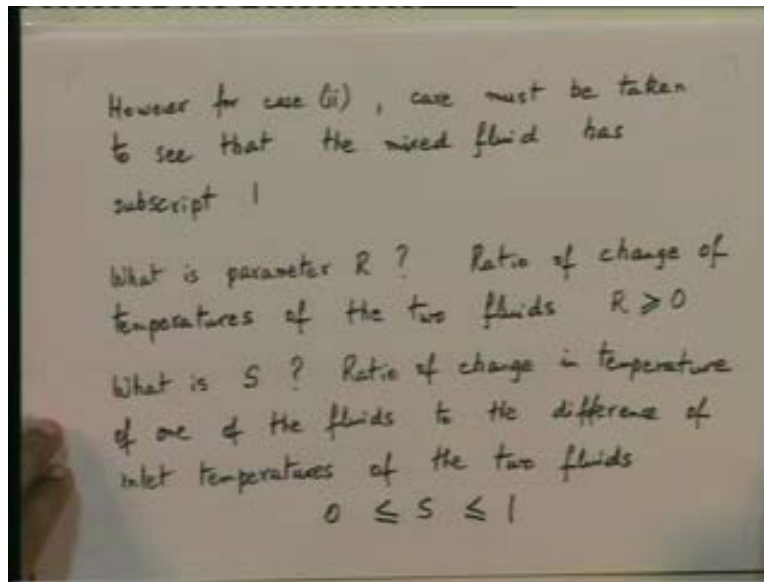 However for case (ii), care must be taken
to see that the mixed fluid has
subscript 1
What is parameter R? Ratio of change of
temperatures of the two fluids R ⩾ 0
What is S? Ratio of change in temperature
of one of the fluids to the difference of
inlet temperatures of the two fluids
0 ≤ S ≤ 1